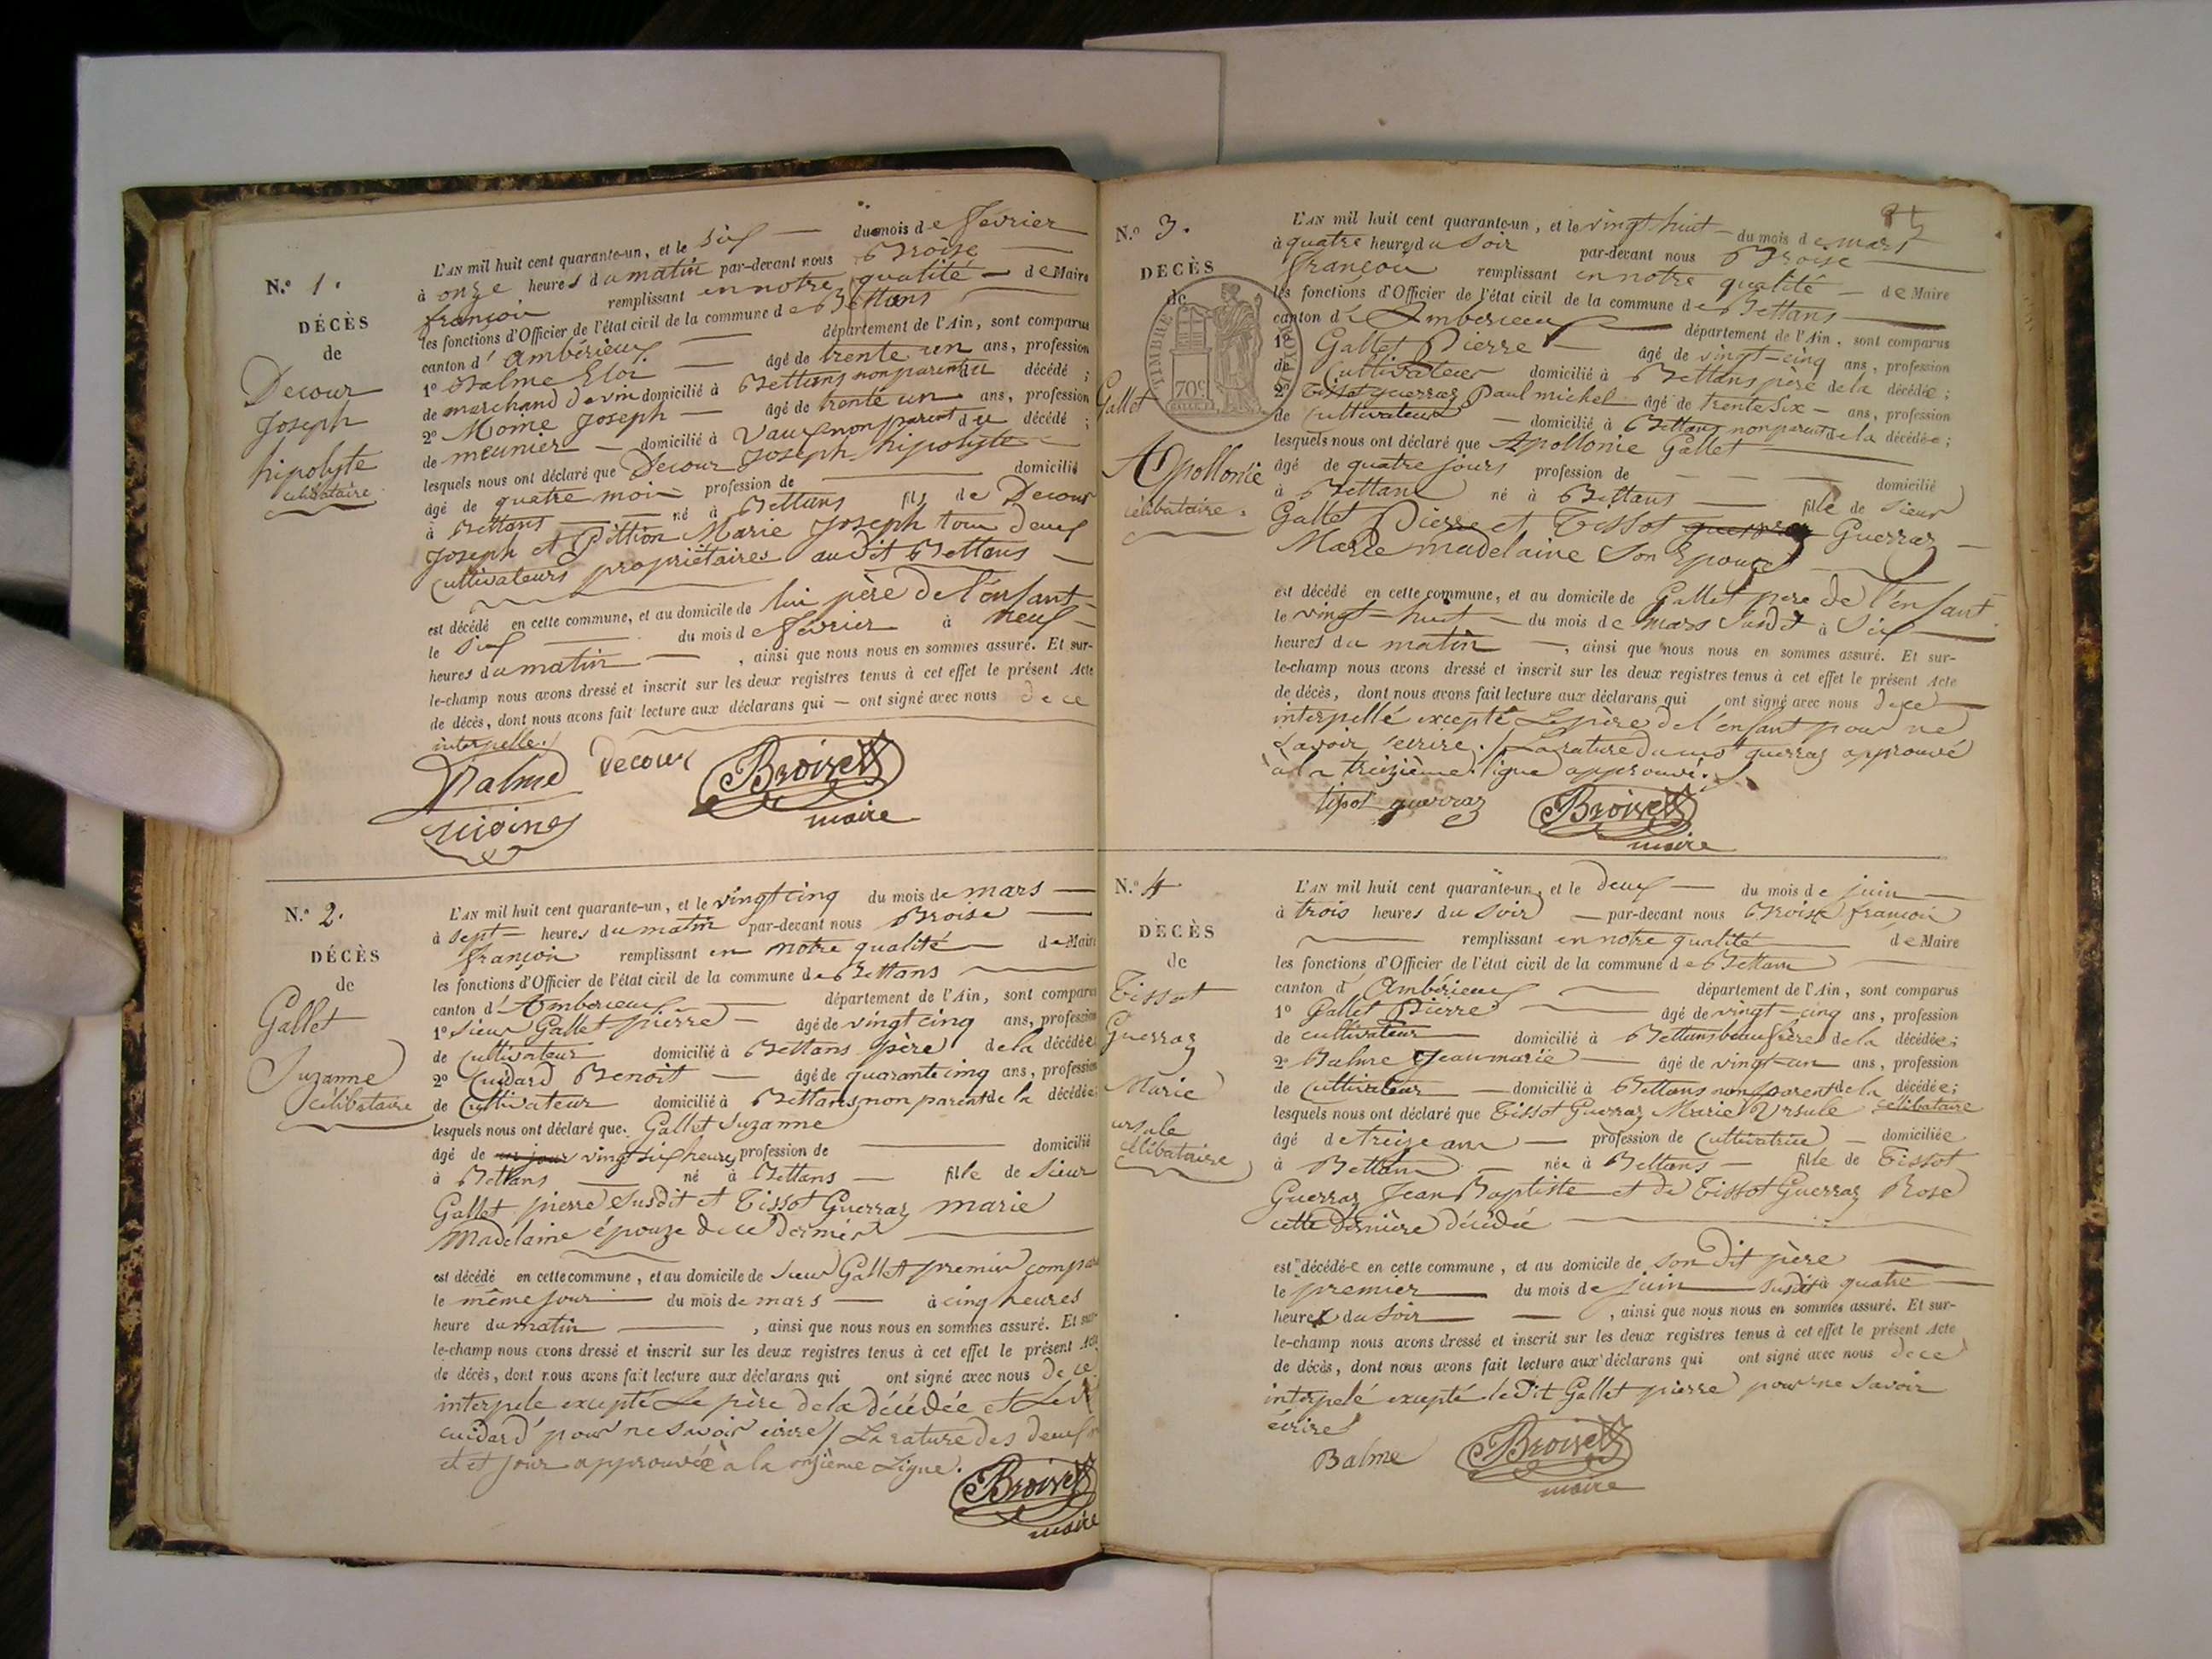 N.o 1.
DÉCÈS
de
Decour
Joseph
hipolyte
célibataire
L'AN mil huit cent quarante-un, et le Six du mois de février
à onze heures du matin par-devant nous Broise
françois remplissant en notre qualité de Maire
les fonctions d'Officier de l'état civil de la commune de Bettans
canton d'Ambérieux département de l'Ain, sont comparus
1o Balme Eloi âgé de trente un ans, profession
de marchand de vin domicilié à Bettans non parent du décédé ;
2o Moine Joseph âgé de trente un ans, profession
de meunier domicilié à Vaux non parent du décédé ;
lesquels nous ont déclaré que Decour Joseph hipolyte
âgé de quatre mois profession de domicilié
à Bettans né à Bettans fils de Decour
Joseph et Pittion Marie Joseph tous deux
Cultivateurs propriétaires audit Bettans
est décédé en cette commune, et au domicile de lui père de l'enfant
le Six du mois de février à neuf
heures du matin , ainsi que nous nous en sommes assuré. Et sur-
le-champ nous avons dressé et inscrit sur les deux registres tenus à cet effet le présent Acte
de décès, dont nous avons fait lecture aux déclarans qui ont signé avec nous de ce
interpellé.
Balme Decour Broise
Moine maire
N.o 2.
DÉCÈS
de
Gallet
Suzanne
célibataire
L'AN mil huit cent quarante-un, et le vingt cinq du mois de mars
à sept heures du matin par-devant nous Broise
françois remplissant en notre qualité de Maire
les fonctions d'Officier de l'état civil de la commune de Bettans
canton d'Ambérieux département de l'Ain, sont comparus
1o Sieur Gallet pierre âgé de vingt cinq ans, profession
de Cultivateur domicilié à Bettans père de la décédée
2o Cuidard Benoit âgé de quarante cinq ans, profession
de Cultivateur domicilié à Bettans non parent de la décédée;
lesquels nous ont déclaré que Gallet Suzanne
âgé de un jour vingt six heures profession de domicilié
à Bettans né à Bettans fille de Sieur
Gallet pierre Susdit et Tissot Guerraz marie
Madelaine épouze de ce dernier
est décédé en cette commune, et au domicile de Sieur Gallet premier compar
le même jour du mois de mars à cinq heures
heure du matin , ainsi que nous nous en sommes assuré. Et sur-
le-champ nous avons dressé et inscrit sur les deux registres tenus à cet effet le présent Acte
de décès, dont nous avons fait lecture aux déclarans qui ont signé avec nous de ce
interpele excepté Le père de la décédée et Led
cuidard pour ne savoir écrire / La rature des deux
et jour approuvée à la onzième Ligne.
Broise
maire
N.o 3.
DÉCÈS
de
Gallet
Apollonie
célibataire.
TIMBRE ROYAL
70c
L'AN mil huit cent quarante-un, et le vingt huit du mois de mars
à quatre heures du Soir par-devant nous Broise
françois remplissant en notre qualité de Maire
les fonctions d'Officier de l'état civil de la commune de Bettans
canton d'Amberieux département de l'Ain, sont comparus
1o Gallet Pierre âgé de vingt-cinq ans, profession
de Cultivateur domicilié à Bettans père de la décédée ;
2o Tissot guerraz Paul michel âgé de trente Six ans, profession
de Cultivateur domicilié à Bettans non parent de la décédée ;
lesquels nous ont déclaré que Apollonie Gallet
âgé de quatre jours profession de domicilié
à Bettans né à Bettans fille de Sieur
Gallet Pierre et Tissot guerraz Guerraz
Marie madelaine Son Epouze
est décédé en cette commune, et au domicile de Gallet pere de l'enfant
le vingt-huit du mois de mars Susdit à Six
heures du matin , ainsi que nous nous en sommes assuré. Et sur-
le-champ nous avons dressé et inscrit sur les deux registres tenus à cet effet le présent Acte
de décès, dont nous avons fait lecture aux déclarans qui ont signé avec nous de ce
interpellé excepté Le père de l'enfant pour ne
Savoir écrire. / La rature du mot guerraz approuvé
à la treizième ligne approuvé.
tisot guerraz Broise
maire
N.o 4
DÉCÈS
de
Tissot
Guerraz
Marie
ursule
célibataire
L'AN mil huit cent quarante-un, et le deux du mois de juin
à trois heures du Soir par-devant nous Broise françois
remplissant en notre qualité de Maire
les fonctions d'Officier de l'état civil de la commune de Bettans
canton d'Ambérieux département de l'Ain, sont comparus
1o Gallet Pierre âgé de vingt-cinq ans, profession
de cultivateur domicilié à Bettans beaufrère de la décédée;
2o Balme Jean marie âgé de vingt-un ans, profession
de Cultivateur domicilié à Bettans non parent de la décédée;
lesquels nous ont déclaré que Tissot Guerraz Marie Ursule célibataire
âgé de treize ans profession de Cultivatrice domiciliée
à Bettans née à Bettans fille de Tissot
Guerraz Jean Baptiste et de Tissot Guerraz Rose
cette dernière décédée
est décédée en cette commune, et au domicile de son dit père
le premier du mois de juin Susdit à quatre
heures du Soir , ainsi que nous nous en sommes assuré. Et sur-
le-champ nous avons dressé et inscrit sur les deux registres tenus à cet effet le présent Acte
de décès, dont nous avons fait lecture aux déclarans qui ont signé avec nous de ce
interpelé excepté le dit Gallet pierre pour ne Savoir
écrire
Balme Broise
maire